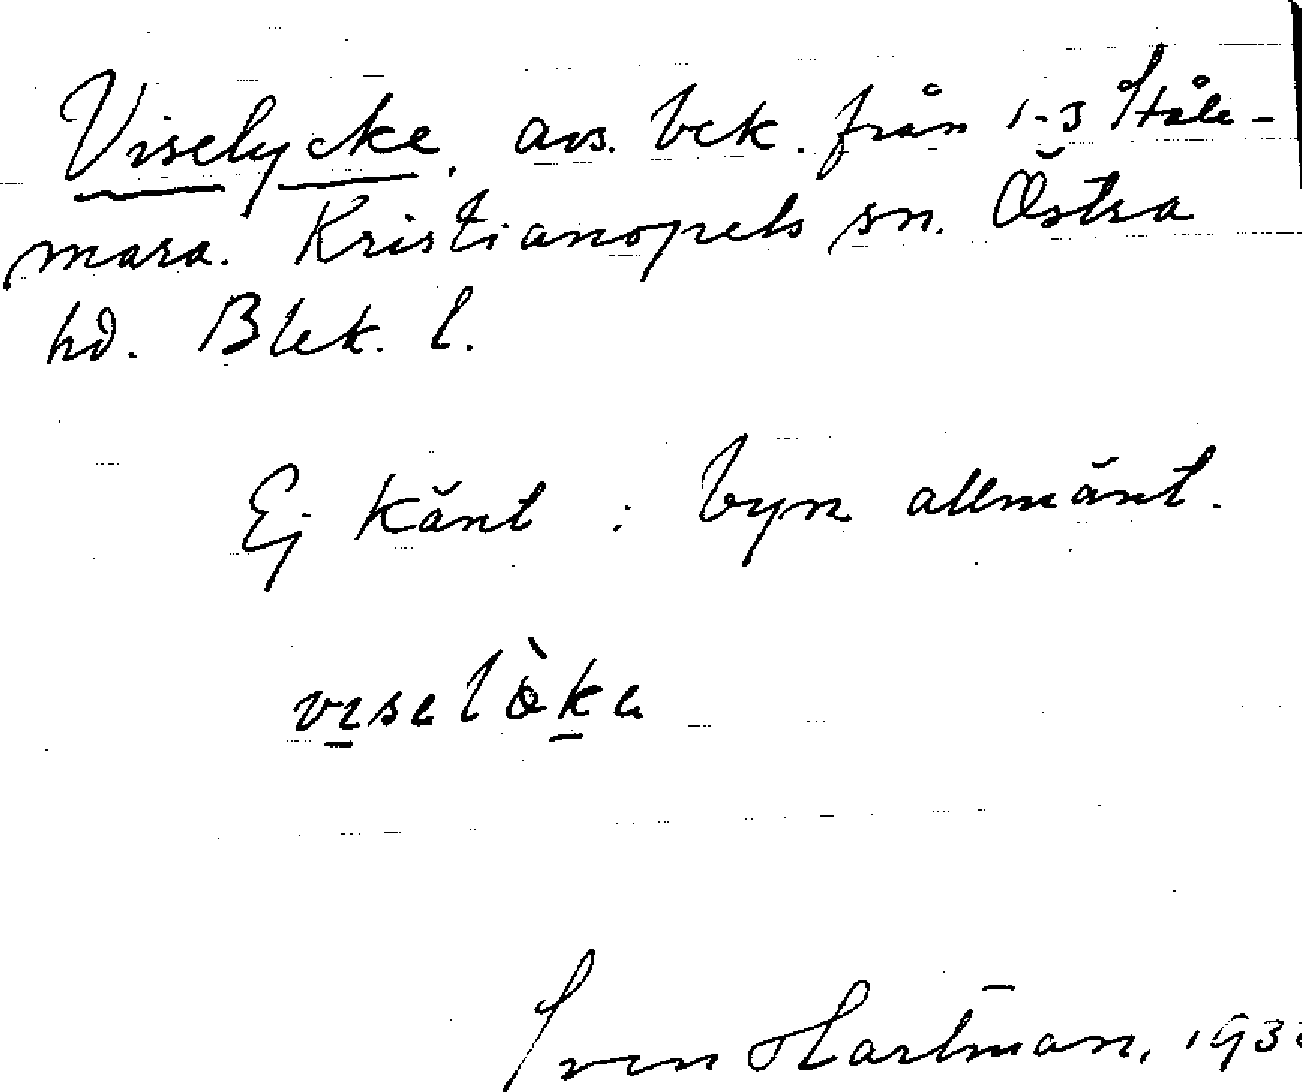 Viselycke, avs. bek. från 1-3 Ståle-
mara. Kristianopels sn. Östra
hd. Blek. l.
Ej känt i byn allmänt.
viselò̀ka
Sven Hartman, 193